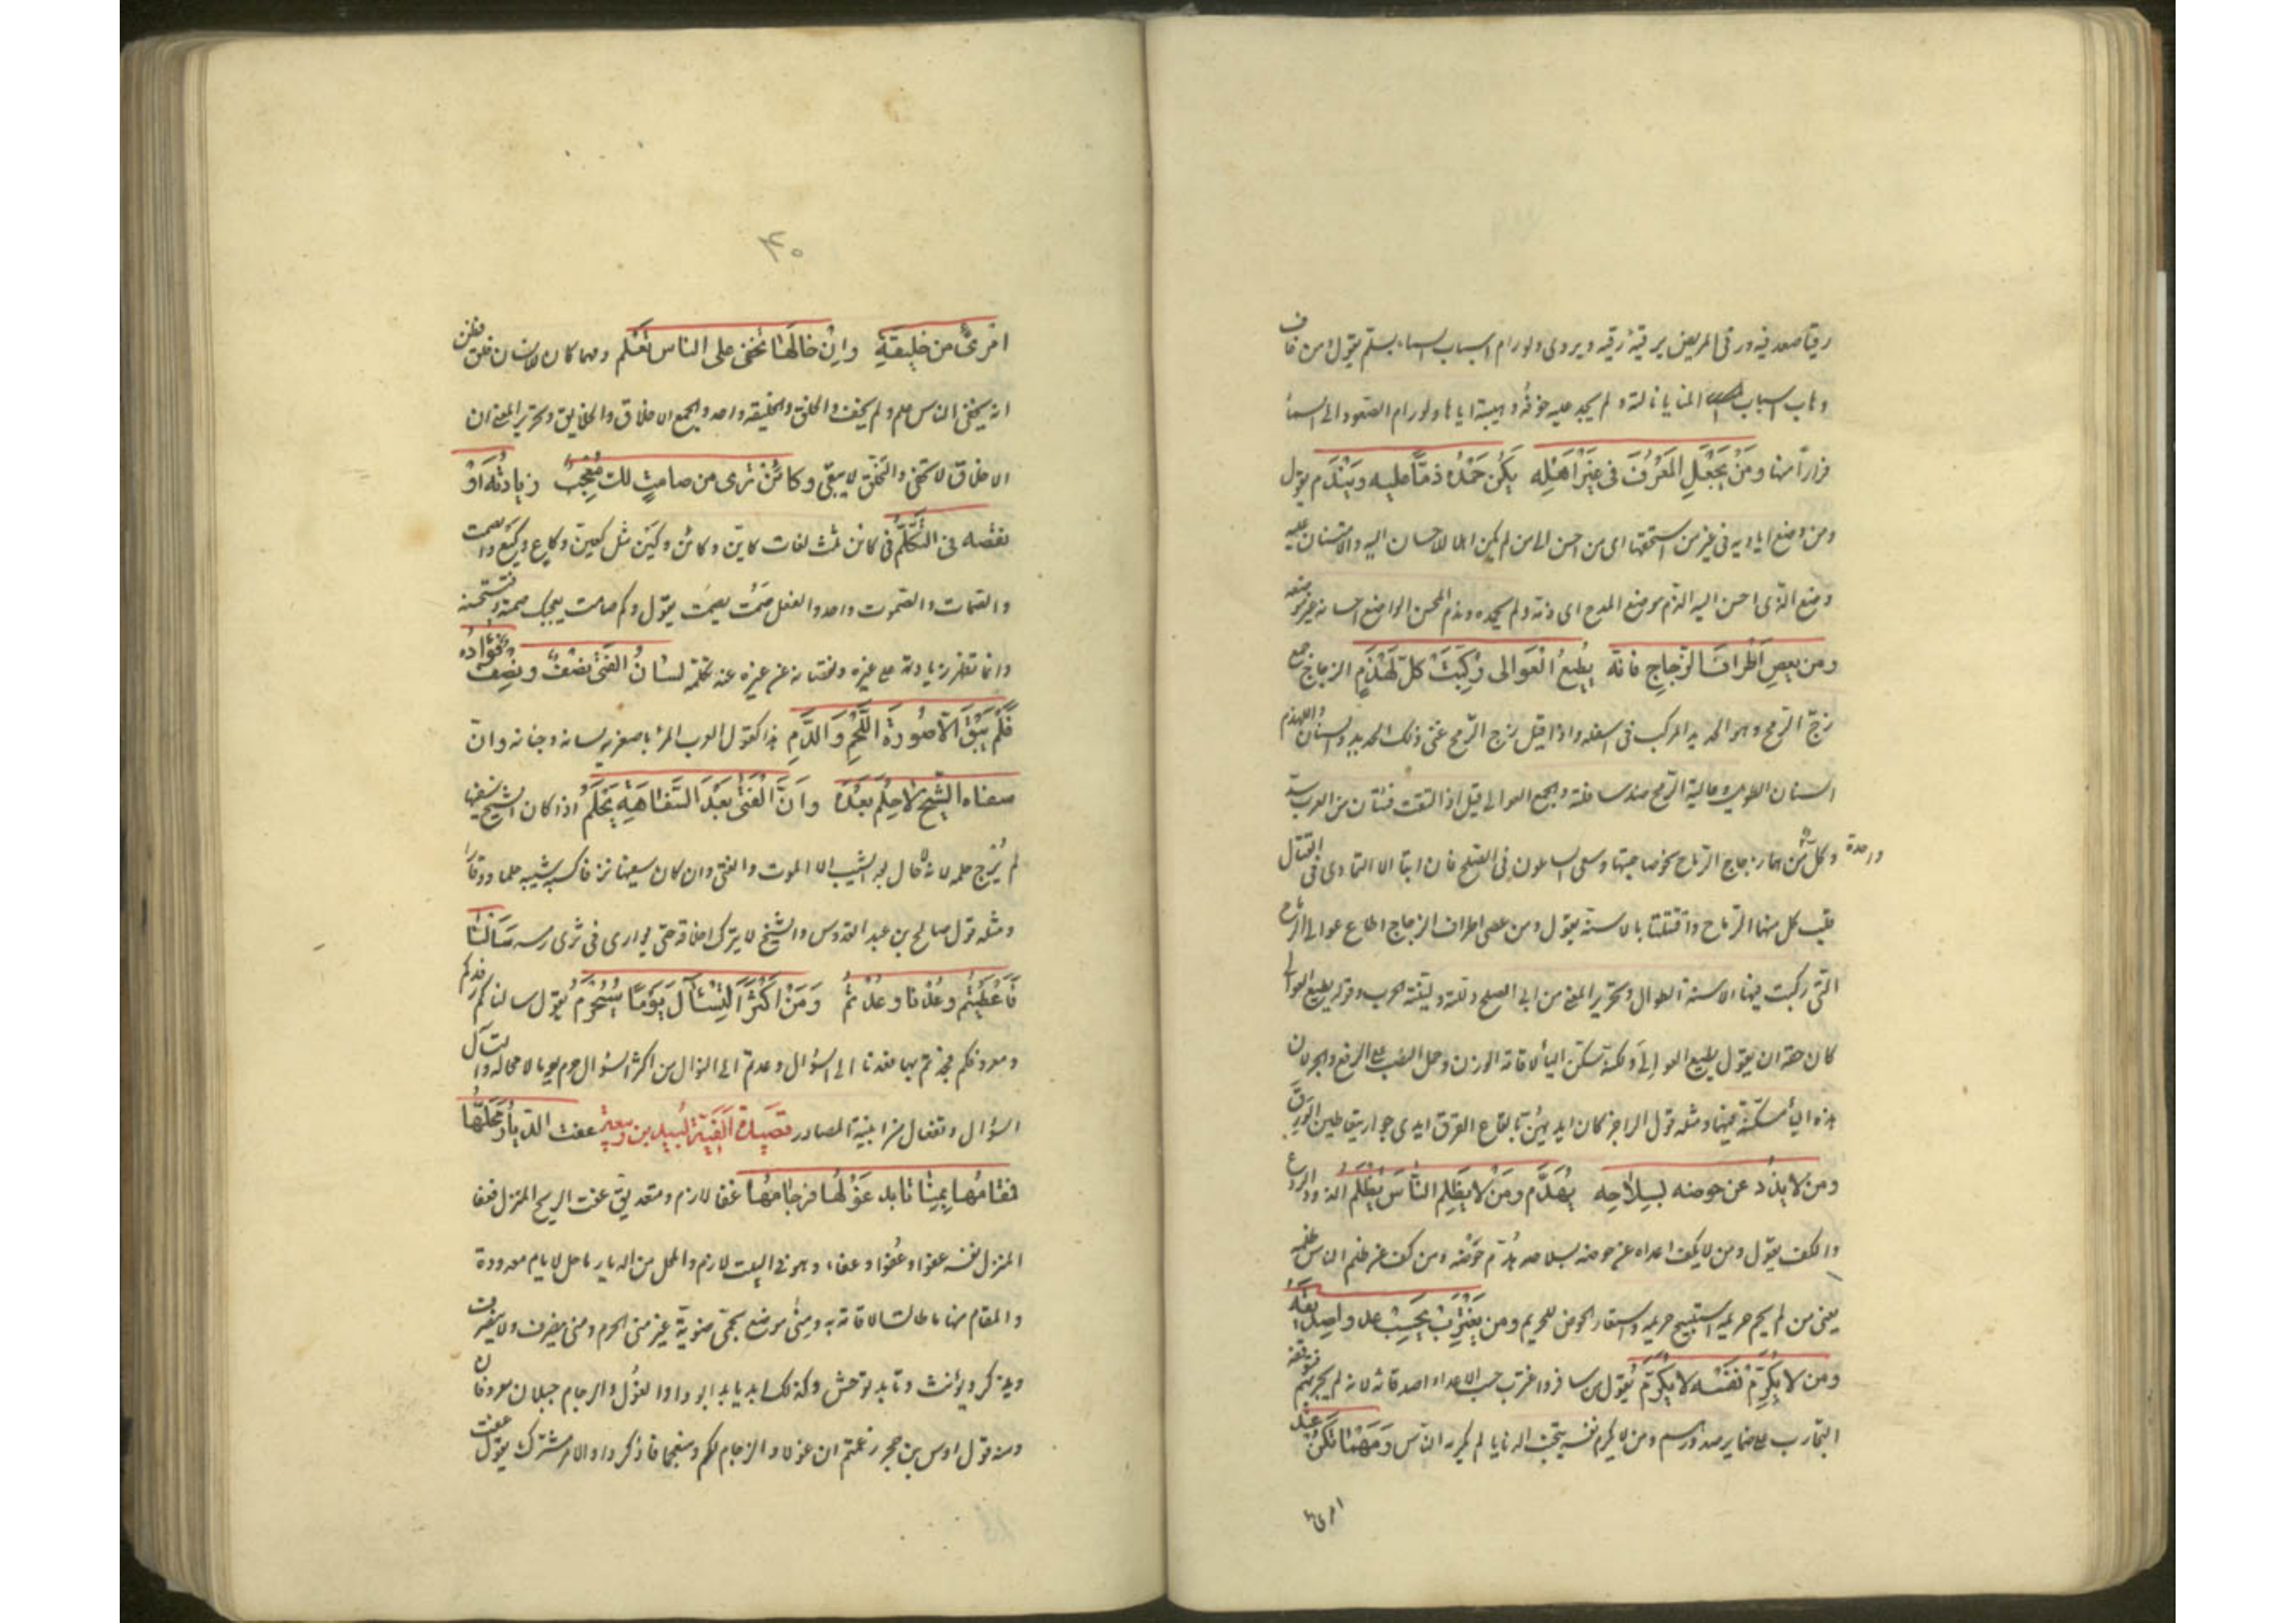 رقيا صعد فيه ورقى المريض يرقيه رقية ويروى ولو رام اسباب السماء بسلم يقول من خاف
وهاب اسباب المنايا نالته ولم يجد عليه خوفه وهيبته اياها ولو رام الصعود الى السماء
فرارا منها ومَنْ يَجْعَلِ المَعْرُوفَ فى غَيْرِ اَهْلِه يَكُنْ حَمْدُه ذمّا عليه ويَنْدَم يقول
ومن وضع اياديه فى غير من استحقها اى من احسن الى من لم يكن اهلا للاحسان اليه والامتنان عليه
وضع الذى احسن اليه الذم موضع المدح اى ذمه ولم يحمده وندم المحسن الواضع احسانه غير موضعه
ومن يعصِ اَطْرافَ الزّجاجِ فانه يُطيعُ العَوالى رُكِّبَتْ كلّ لَهْذَمِ الزجاج جمع
زجّ الرمح وهو الحديد المركب فى اسفله واذا قيل زج الرمح عنى ذلك الحديد والسنان واللهذم
السنان الطويل وعالية الرمح ضد سافلته والجمع العوالى قيل اذا التقت فئتان من العرب سدّد
وكل منهما زجاج الرماح نحو صاحبتها وسعى الساعون فى الصلح فان ابتا الا التمادى فى القتال
واحدة
قلب كل منهما الرماح واقتتلتا بالاسنة يقول ومن عصى اطراف الزجاج اطاع عوالى الرماح
التى ركبت فيها الاسنة الطوال وتحرير المعنى من ابى الصلح ذللته ولينته الحرب وقوله يطيع العوالى
كان حقه ان يقول يطيع العوالىَ ولكنه سكن الياء لاقامة الوزن وحمل النصب على الرفع والجر لان
هذه الياء مسكنة فيهما ومثله قول الراجز كان ايديهنّ بالقاع القرق ايدى جوار يتعاطين الورق
ومن لا يذُد عن حوضه بسِلاحِه يُهَدَّم ومَنْ لا يَظْلِمِ النّاسَ يُظْلَم الذود الردع
والكف يقول ومن لا يكف اعداءه عن حوضه بسلاحه هُدّم حَوْضُه ومن كف عن ظلم الناس ظلمه
يعنى من لم يحم حريمه استبيح حريمه واستعار الحوض للحريم ومن يَغْتَرِبْ يَحْسِبْ عدوا صديقَه
ومن لا يُكرِّمْ نَفْسَه لا يُكرَّم يقول من سافر واغترب حسب الاعداء اصدقائه لانه لم يجربهم فتوقفه
التجارب على ضماير صدورهم ومن لا يكرم نفسه بتجنب الدنايا لم يكرمه الناس وَمَهْمَا تَكُنْ عند
امرئ
۴۰
امْرِئٍ من خليقَةٍ وإنْ خالَها تخفى على الناس تُعْلَم ومهما كان لانسان خلق فظن
انه يخفى الناس علم ولم يخف والخلق والخليقه واحد والجمع الاخلاق والخلايق وتحرير المعنى ان
الاخلاق لا تخفى والتخلّق لا يبقى وكائنْ ترى من صامتٍ لك مُعْجِبٌ زيادتُه اَوْ
نقصه فى التَّكَلُّمِ فى كائن ثلث لغات كاين وكائن وكين مثل كعين وكاع وكيع والصمت
والصمات والصموت واحد والفعل صَمَت يصمُت يقول وكم صامت يعجبك صمته فتستحسنه
وانما تظهر زيادته على غيره ونقصانه عن غيره عند تكلمه لسَانُ الفتى نصْفٌ ونِصْفٌ فُؤادُه
فَلَمْ يَبْقَ اِلّا صُورَةُ اللَّحْمِ وَالدَّمِ هذا كقول العرب المرء باصغريه لسانه وجنانه وانّ
سفاه الشيْخِ لا حِلْمَ بَعْدَهُ واَنَّ الفَتى بَعْدَ السَّفَاهَةِ يَحْلُم اذا كان الشيخ سفيها
لم يُرْج حلمه لانه لا حال بعد الشيب الا الموت والفتى وان كان سفيها نزقا كسبه شيبه حلما ووقارا
ومثله قول صالح بن عبد القدوس والشيخ لا يترك اخلاقه حتى يوارى فى ثرى رمسه سَاَلْنا
فَاَعْطَيْتُم وعُدْنا وعُدْتُم وَمَنْ اَكْثَرَ التَّسْآلَ يَوْمًا سَيُحْرَم يقول سالناكم رفدكم
ومعروفكم فجدتم بهما فعدنا الى السؤال وعدتم الى النوال ومن اكثر السؤال حرم يوما لا محالة والتسآل
السؤال وتفعال من ابنية المصادر قصيدة الفية لبيد بن ربيعة عفت الديار مَحَلُّها
فمُقامُها بِمِنًا تابد غَوْلُها فرِجامُها عفا لازم ومتعد يق عفت الريح المنزل فعفا
المنزل نفسه عفوا وعُفوّا وعفاء وهو فى البيت لازم والمحل من الديار ما حل لايام معدودة
والمقام منها ما طالت الاقامة به ومنى موضع بحمى ضرية غير منى الحرم ومنى ينصرف ولا ينصرف
ويذكر ويؤنث وتابد توحش وكذلك ابد يابد ابودا والغول والرجام جبلان معروفان
ومنه قول اوس بن حجر زعمتم ان غولا والرجام لكم ومنعجا فاذكروا والامر مشترك يقول عفت